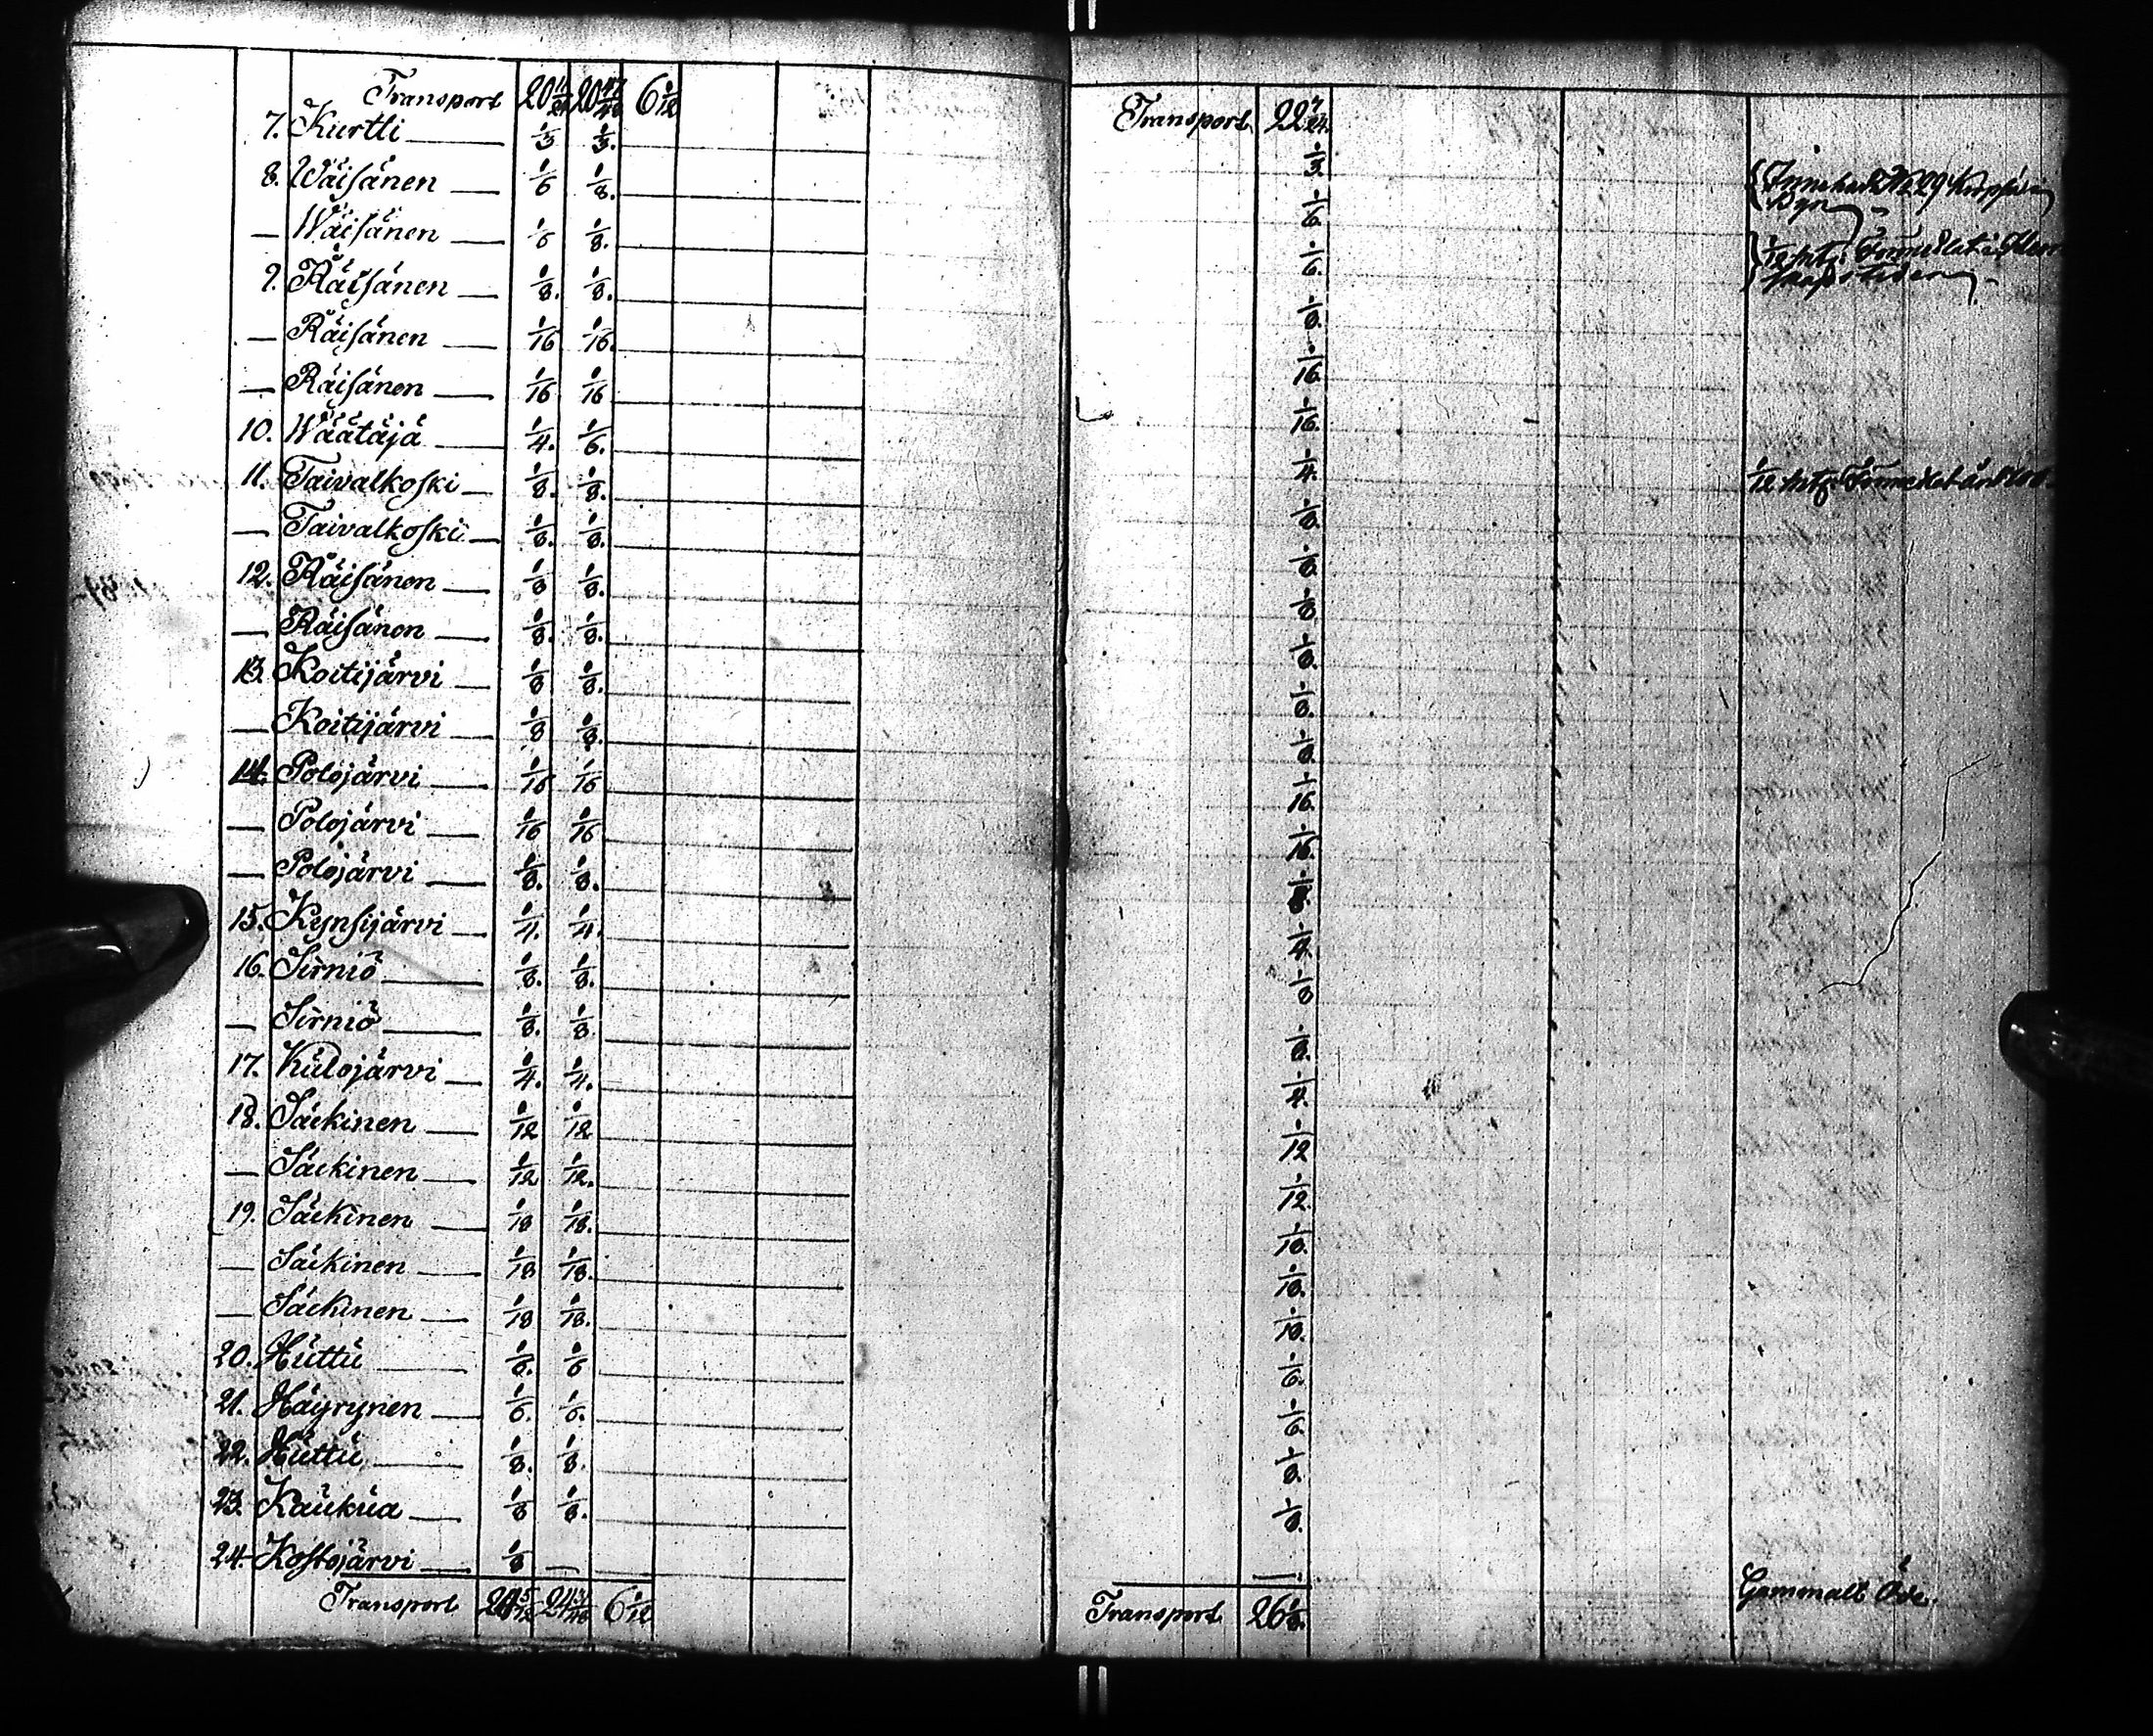 Transport 20 11/24 20 47/48 6 1/12
7. Kurtti 1/3 1/3.
8. Wäisänen 1/6 1/8.
— Wäisänen 1/6 1/8.
9. Räisänen 1/8. 1/8.
— Räisänen 1/16 1/16.
— Räisänen 1/16 1/16
10. Wäätäjä 1/4. 1/6.
11. Taivalkoski 1/8. 1/8.
— Taivalkoski 1/8. 1/8.
12. Räisänen 1/8 1/8.
— Räisänen 1/8. 1/8.
13. Koitijärvi 1/8 1/8.
— Koitijärvi 1/8 1/8.
14. Polojärvi 1/16 1/16
— Polojärvi 1/16 1/16
— Polojärvi 1/8. 1/8.
15. Kynsijärvi 1/4. 1/4.
16. Sirniö 1/8. 1/8.
— Sirniö 1/8. 1/8
17. Kulojärvi 1/4. 1/4.
18. Säckinen 1/12 1/12
— Säckinen 1/12 1/12.
19. Säckinen 1/18 1/18.
— Säckinen 1/18 1/18.
— Säckinen 1/18 1/18.
20. Huttu 1/6. 1/6
21. Häyrynen 1/6. 1/6.
22. Huttu 1/8. 1/8.
23. Kaukua 1/8 1/8.
24. Kostojärvi 1/8 —
Transport 6 1/12
Transport 22 7/24.
1/3.
1/6.
1/6.
1/8.
1/16.
1/16.
1/4.
1/8.
1/8.
1/8
1/8.
1/8.
1/8
1/16.
1/16.
1/8.
1/4.
1/8
1/8.
1/4.
1/12
1/12.
1/18.
1/18.
1/18.
1/6.
1/6.
1/8.
1/8.
—
Transport 26 1/8.
No 29
Byn
1/12
1/12 mtg.
Gammalt Öde.